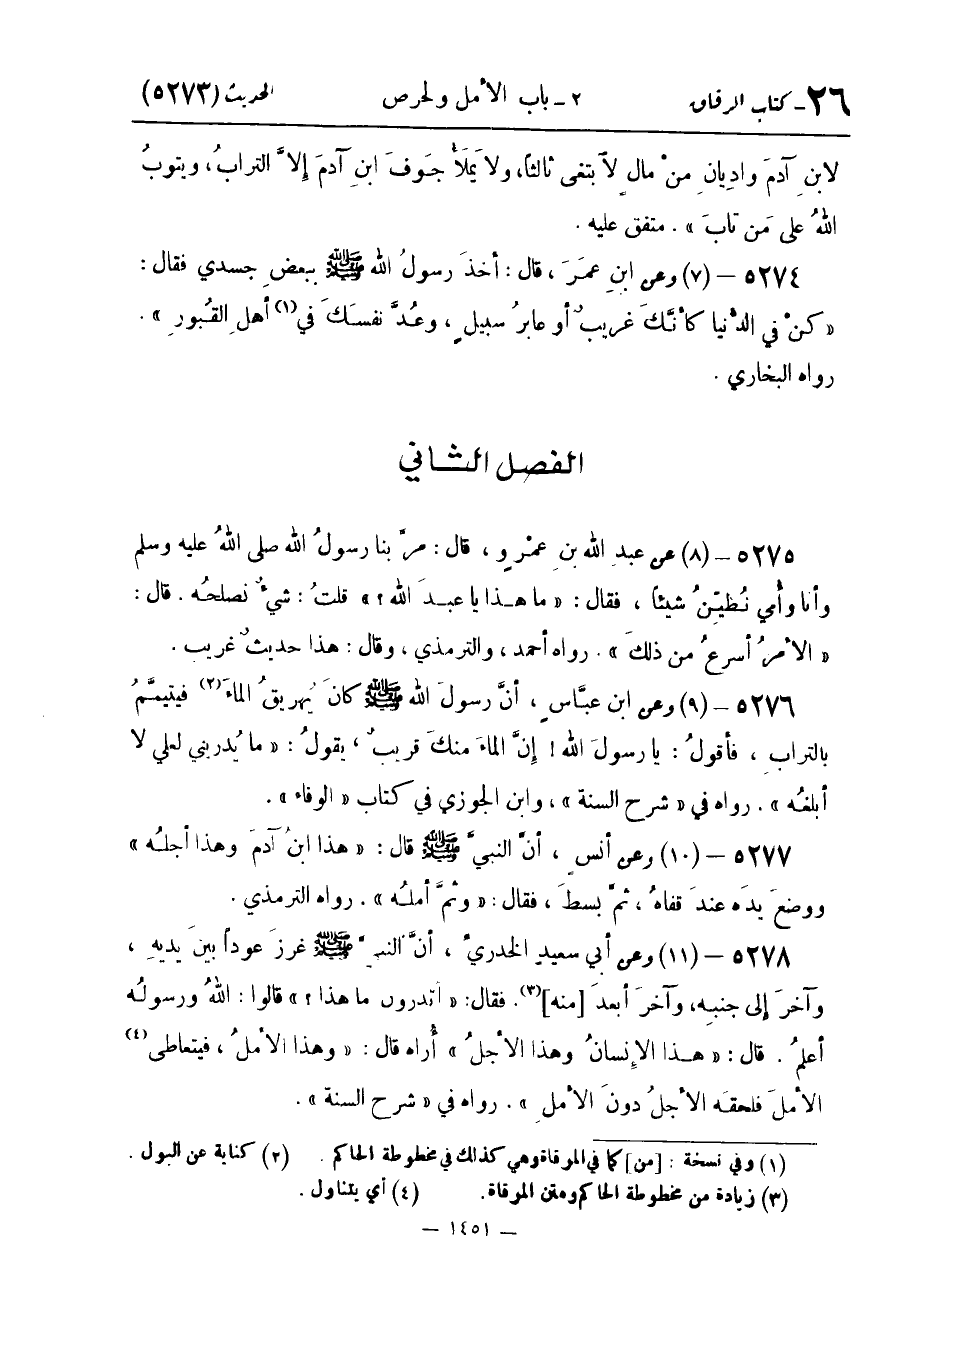 ٢٦ - كتاب الرقاق ٢ - باب الأمل والحرص الحديث (٥٢٧٣)
لابنِ آدمَ واديانِ منْ مالٍ لابتغى ثالثاً، ولا يَملَأُ جَوفَ ابنِ آدمَ إِلاَّ الترابُ، ويتوبُ
اللهُ على مَن تابَ » . متفق عليه .
٥٢٧٤ – (٧) وعن ابنِ عمَرَ ، قال : أخذَ رسولُ الله ﷺ ببعضِ جسدي فقال :
« كنْ في الدُّنيا كأنَّكَ غريبٌ أو عابرُ سبيلٍ ، وعُدَّ نفسَكَ في(١) أهلِ القُبورِ » .
رواه البخاري .
الفصل الثاني
٥٢٧٥ – (٨) عن عبدِ الله بنِ عمْرٍو ، قال : مرَّ بنا رسولُ الله صلى اللهُ عليه وسلم
وأنا وأُمي نُطيِّنُ شيئاً ، فقال : « ما هـذا يا عبـدَ الله ؟ » قلتُ : شيءٌ نصلحُه . قال :
« الأمرُ أسرعُ من ذلكَ » . رواه أحمد ، والترمذي ، وقال : هذا حديثٌ غريب .
٥٢٧٦ – (٩) وعن ابن عبَّاسٍ ، أنَّ رسولَ الله ﷺ كانَ يُهريقُ الماءَ(٢) فيتيممُ
بالترابِ ، فأقولُ : يا رسولَ الله ! إِنَّ الماءَ منكَ قريبٌ ، يقولُ : « ما يُدريني لعلي لا
أبلغُه » . رواه في « شرح السنة » ، وابن الجوزي في كتاب « الوفاء » .
٥٢٧٧ – (١٠) وعن أنسٍ ، أنَّ النبيَّ ﷺ قال : « هذا ابنُ آدمَ وهذا أجلُه »
ووضعَ يدَه عندَ قفاهُ ، ثمَّ بسطَ ، فقال : « وثَمَّ أملُه » . رواه الترمذي .
٥٢٧٨ – (١١) وعن أبي سعيدٍ الخدريِّ ، أنَّ النبيَّ ﷺ غرزَ عوداً بينَ يديهِ ،
وآخرَ إِلى جنبِه، وآخرَ أبعدَ [منه](٣). فقال: « أتدرون ما هذا ؟ » قالوا : اللهُ ورسولُه
أعلمُ . قال : « هـذا الإِنسانُ وهذا الأجلُ » أُراه قال : « وهذا الأملُ ، فيتعاطى(٤)
الأملَ فلحقَه الأجلُ دونَ الأملِ » . رواه في « شرح السنة » .
(١) وفي نسخة : [من] كما في المرقاة وهي كذلك في مخطوطة الحاكم . (٢) كناية عن البول .
(٣) زيادة من مخطوطة الحاكم ومتن المرقاة. (٤) أي يتناول .
– ١٤٥١ –